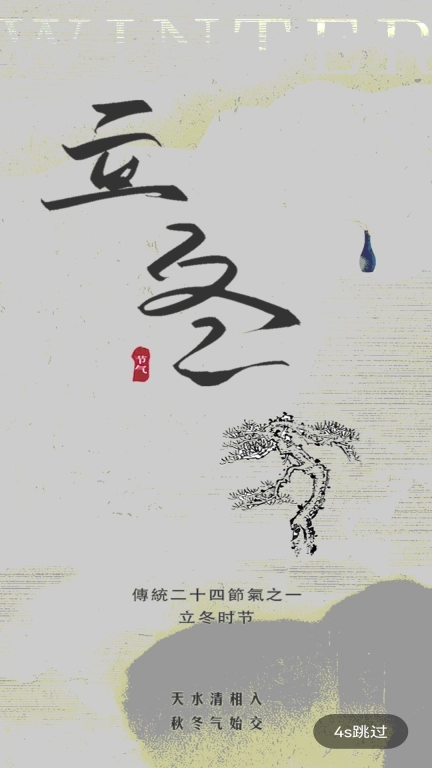 WINTER
立冬
节气
傳統二十四節氣之一
立冬时节
天水清相入
秋冬气始交
4s跳过